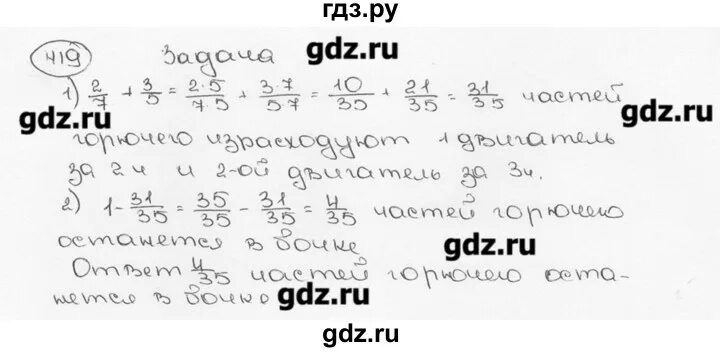 гдз.ру
419 Задача gdz.ru
1) 2/7 + 3/5 = 2·5/7·5 + 3·7/5·7 = 10/35 + 21/35 = 31/35 частей
gdz.ru gdz.ru
горючего израсходуют 1 двигатель
за 2 ч и 2-ой двигатель за 3ч.
2) 1 - 31/35 = 35/35 - 31/35 = 4/35 частей горючего
останется в бочке gdz.ru
Ответ 4/35 частей горючего оста-
нется в бочке gdz.ru
gdz.ru